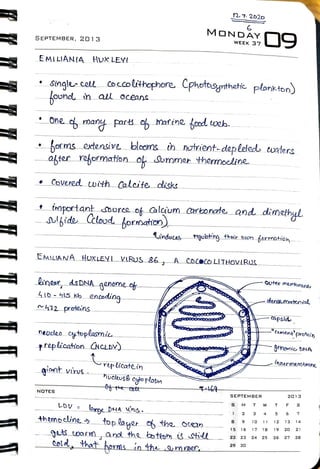 12.9.2020
6
SEPTEMBER, 2013
MONDAY 09
WEEK 37
EMILIANIA HUXLEYI
• Single-cell coccolithophore (photosynthetic plankton)
found in all oceans
• One of many parts of marine food web.
• forms extensive blooms in nutrient-depleted waters
after reformation of Summer thermocline
• Covered with Calcite disks
• important source of calcium carbonate and dimethyl
sulfide (cloud formation)
induces their own formation
EMILIANA HUXLEYI VIRUS 86, A COCCOLITHOVIRUS
linear, dsDNA genome of
410 - 415 kb encoding
~472 proteins
nucleo cytoplasmic
replication (NCLDV)
giant virus
replicate in
nucleus & cytoplasm
of the cell
Outer membrane
capsid
protein
genomic DNA
inner membrane
T=169
NOTES
LDV = large DNA virus.
thermocline → top layer of the ocean
gets warm, and the bottom is still
cold, that forms in the summer.
SEPTEMBER 2013
S M T W T F S
1 2 3 4 5 6 7
8 9 10 11 12 13 14
15 16 17 18 19 20 21
22 23 24 25 26 27 28
29 30